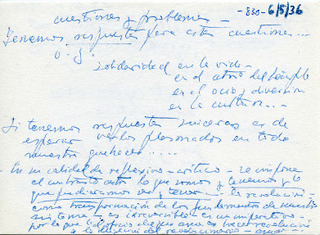 cuestiones y problemas -
-880- 6/5/36
Tenemos respuesta para estas cuestiones...
o.g.
solidaridad en la vida -
en el atrio del templo
en el ocio y diversion
en la cultura...
Si tenemos respuestas sinceras es de
esperar verlas plasmados en todo
nuestro quehacer.....
En mi calidad de reflexivo - critico - se impone
el contraste entre lo que somos y tenemos y lo
que pudieramos ser y tener - La revolución
como transformación de los fundamentos de nuestro
sistema - es irreversible es un imperativo -
por lo que